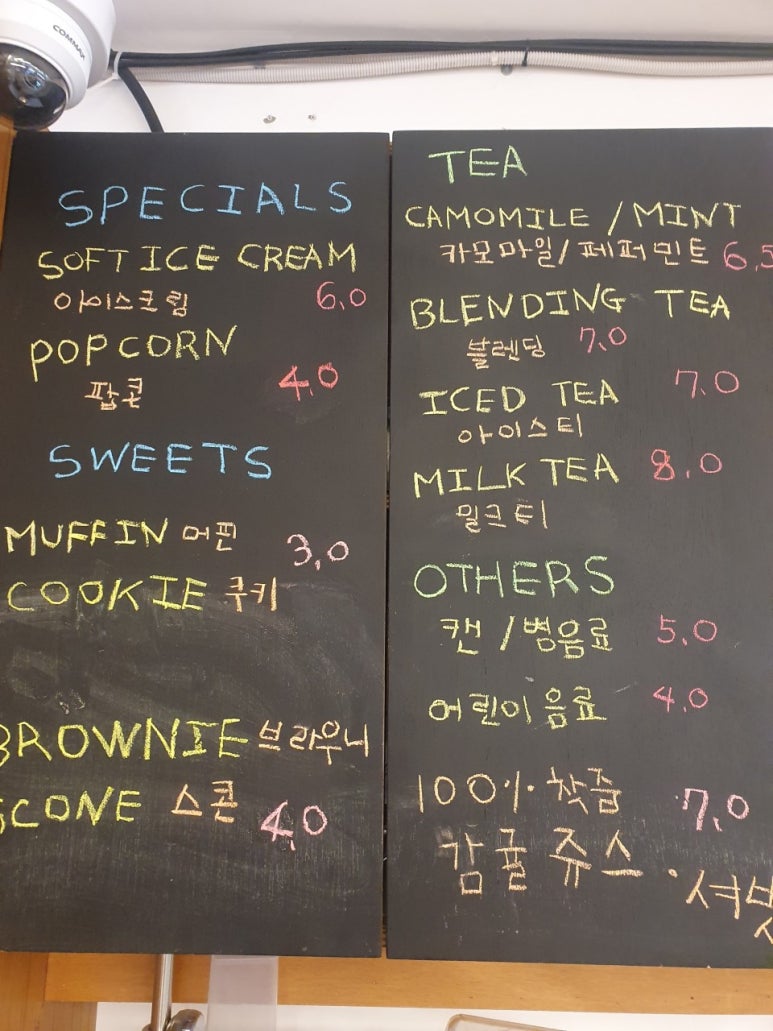 COMMAX
SPECIALS
SOFT ICE CREAM
아이스크림 6.0
POPCORN
팝콘 4.0
SWEETS
MUFFIN 머핀 3.0
COOKIE 쿠키
BROWNIE 브라우니
SCONE 스콘 4.0
TEA
CAMOMILE / MINT
카모마일/페퍼민트 6.5
BLENDING TEA
블렌딩 7.0
ICED TEA 7.0
아이스티
MILK TEA 8.0
밀크티
OTHERS
캔/병음료 5.0
어린이음료 4.0
100% 착즙 7.0
감귤 쥬스